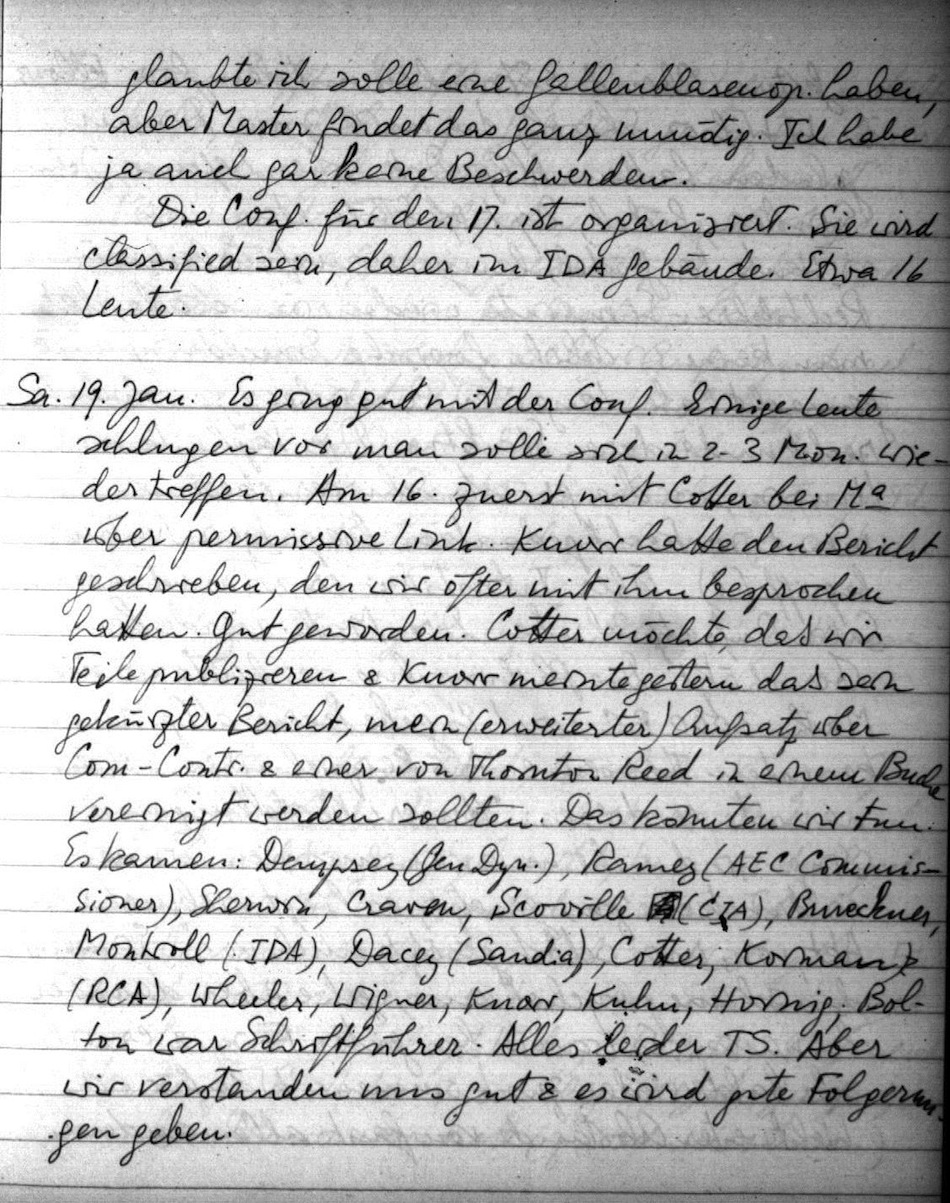 glaubte ich solle eine Gallenblasenop. haben,
aber Master findet das ganz unnötig. Ich habe
ja auch gar keine Beschwerden.
Die Conf. für den 17. ist organisiert. Sie wird
classified sein, daher im IDA gebäude. Etwa 16
Leute.
Sa. 19. Jan. Es ging gut mit der Conf. Einige Leute
schlugen vor man solle sich in 2-3 Mon. wie-
der treffen. Am 16. zuerst mit Cotter bei Ma
über permissive Link. Knorr hatte den Bericht
geschrieben, den wir öfter mit ihm besprochen
hatten. Gut geworden. Cotter möchte, das wir
Teile publizieren & Knorr meinte gestern das sein
gekürzter Bericht, mein (erweiterter) Aufsatz über
Com-Contr. & einer von Thornton Reed in einem Buche
vereinigt werden sollten. Das könnten wir tun.
Es kamen: Dempsey (Gen Dyn.), Ramey (AEC Commis-
sioner), Sherwin, Craven, Scoville (CIA), Brueckner,
Montroll (IDA), Dacey (Sandia), Cotter, Korman
(RCA), Wheeler, Wigner, Knorr, Kuhn, Hornig; Bol-
ton war Schriftführer. Alles leider TS. Aber
wir verstanden uns gut & es wird gute Folgerun
gen geben.